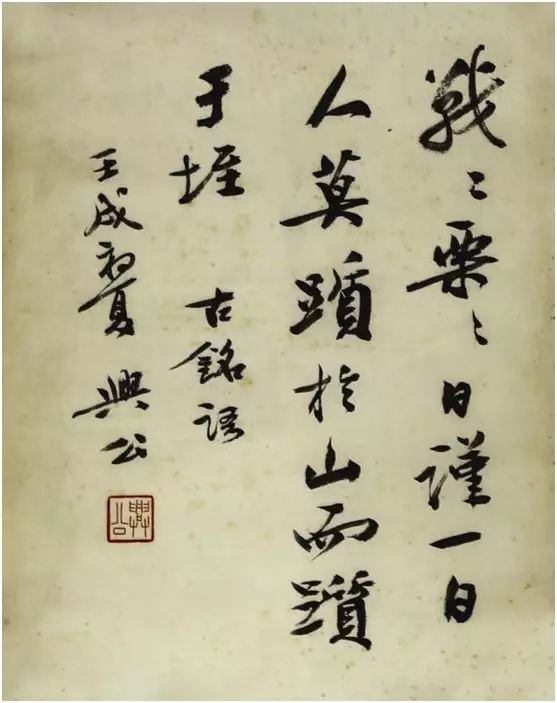 戰〻栗〻日謹一日
人莫躓扵山而躓
于垤 古銘語
壬戌初夏 興公
興公